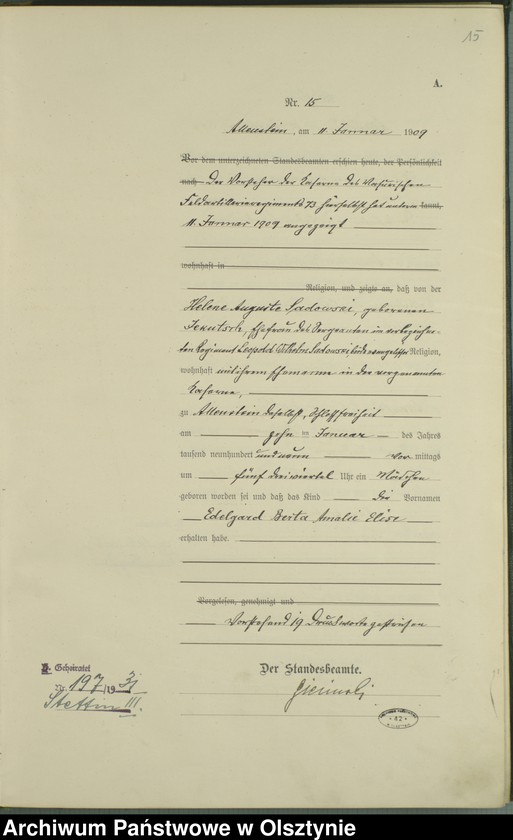 15
A.
Nr. 15
Allenstein, am 11. Januar 1909
Vor dem unterzeichneten Standesbeamten erschien heute, der Persönlichkeit
nach Der Vorsteher der Kaserne des Masurischen
Feldartillerieregiments 73 hierselbst hat unterm kannt,
11. Januar 1909 angezeigt
wohnhaft in
Religion, und zeigte an, daß von der
Helene Auguste Sadowski, geborenen
Jekutsch, Ehefrau des Sergeanten im
Regiment Leopold Wilhelm Sadowski beide evangelischer Religion,
wohnhaft mit ihrem Ehemanne in der vorgenannten
Kaserne,
zu Allenstein daselbst, Schloßfreiheit
am zehn ten Januar des Jahres
tausend neunhundert und neun vor mittags
um fünf dreiviertel Uhr ein Mädchen
geboren worden sei und daß das Kind die Vornamen
Edelgard Berta Amalie Elise
erhalten habe.
Vorgelesen, genehmigt und
Vorstehend 19 Druckworte gestrichen
Der Standesbeamte.
Geheiratet
Nr. 197/1931
Stettin III.